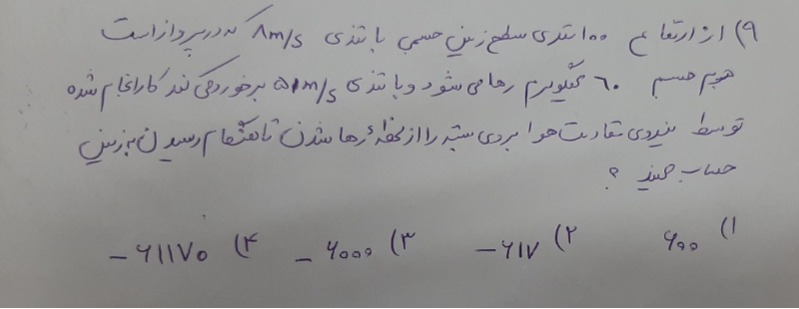 ۹) از ارتفاع ۱۰۰ متری سطح زمین جسمی با تندی ۸m/s که در پرواز است
جرم جسم ۶۰ کیلوگرم رها می شود و با تندی ۵۱m/s برخورد می کند کار انجام شده
توسط نیروی مقاومت هوا بر روی بسته را از لحظهٔ رها شدن تا هنگام رسیدن به زمین
حساب کنید ؟
۱) ۶۰۰ ۲) ۶۱۷- ۳) ۶۰۰۰- ۴) ۶۱۱۷۰-